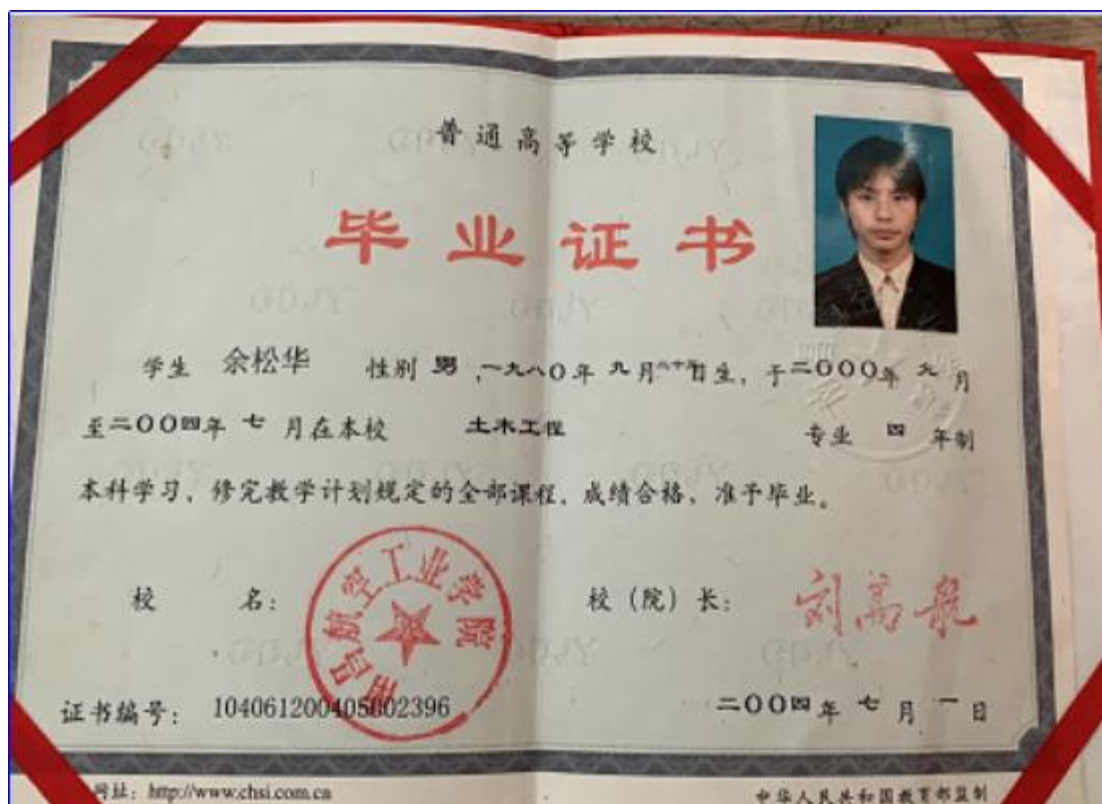 普通高等学校
毕业证书
学生 余松华 性别 男 ,一九八〇年 九月 日生, 于二〇〇〇年 九月
至二〇〇四年 七 月在本校 土木工程 专业 四 年制
本科学习, 修完教学计划规定的全部课程, 成绩合格, 准予毕业。
校 名: 南昌航空工业学院 校 (院) 长: 刘高航
证书编号: 104061200405002396 二〇〇四年 七 月 一 日
网址: http://www.chsi.com.cn 中华人民共和国教育部监制